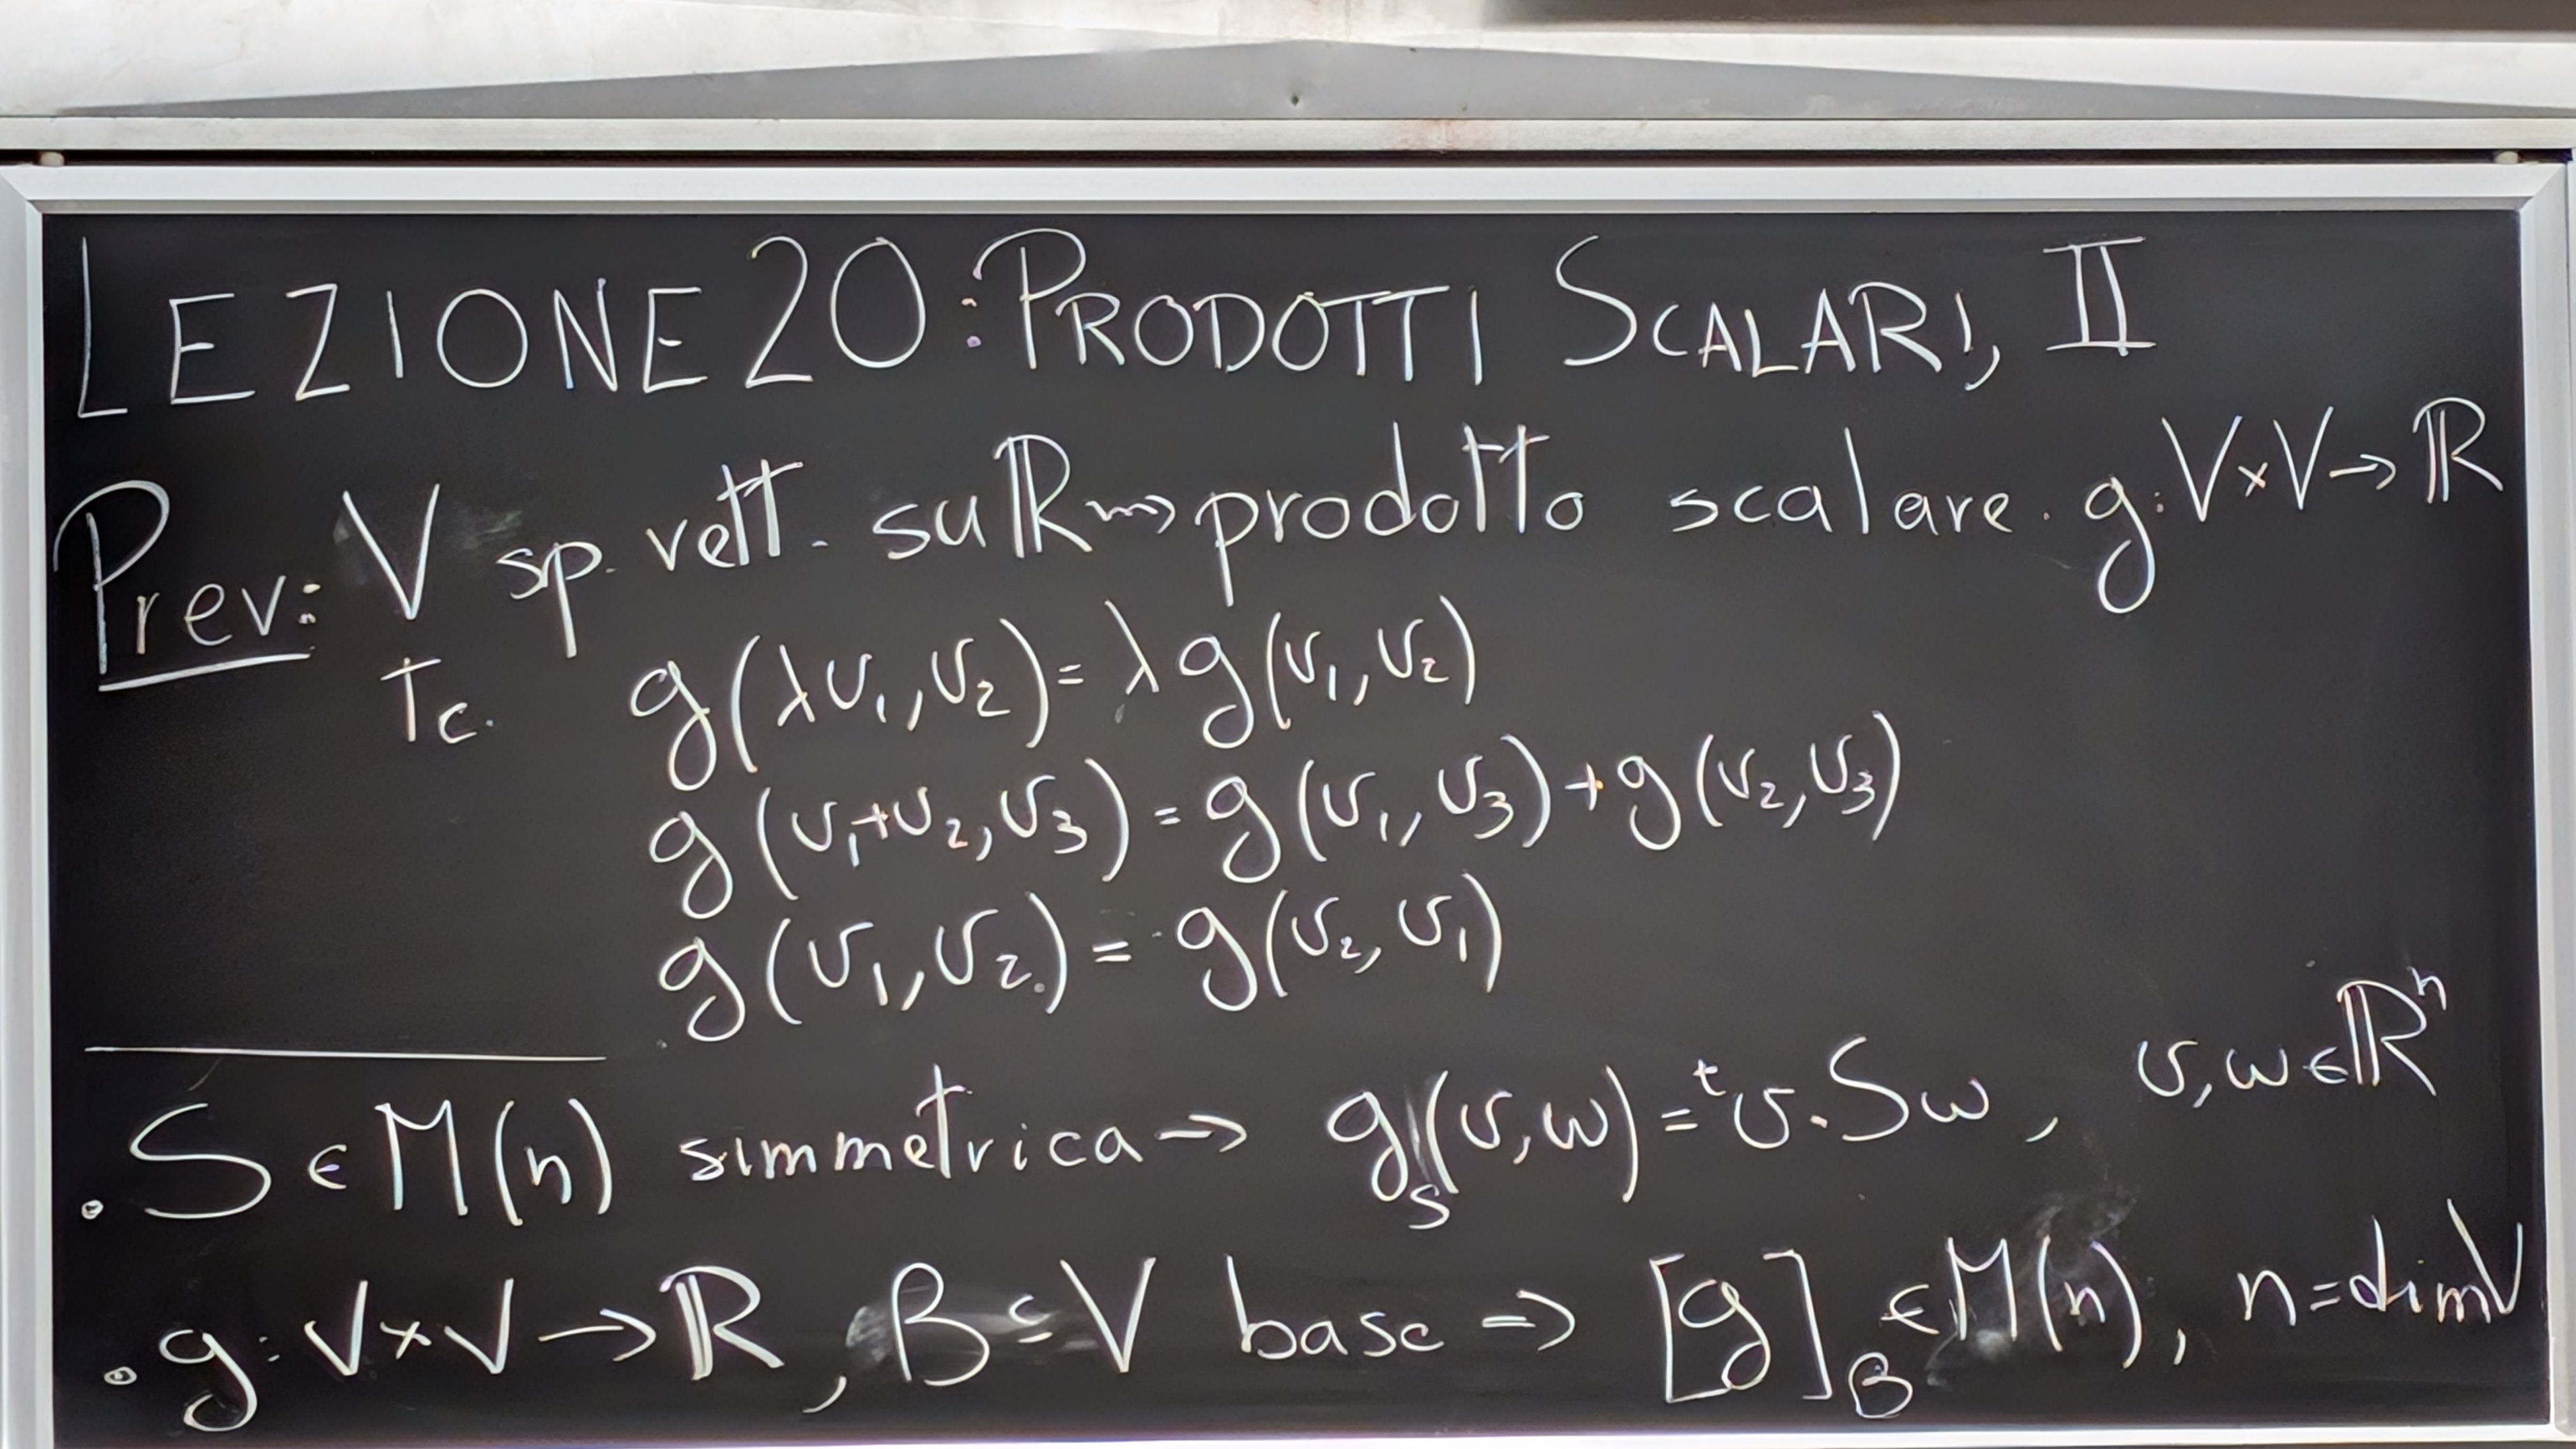 LEZIONE 20: PRODOTTI SCALARI, II
Prev: V sp. vett. su ℝ ⇝ prodotto scalare. g: V×V → ℝ
Tc. g(λv₁, v₂) = λg(v₁, v₂)
g(v₁+v₂, v₃) = g(v₁, v₃) + g(v₂, v₃)
g(v₁, v₂) = g(v₂, v₁)
• S ∈ M(n) simmetrica → g_S(v, w) = ᵗv·Sw, v, w ∈ ℝⁿ
• g: V×V → ℝ, B ⊆ V base → [g]_B ∈ M(n), n = dim V